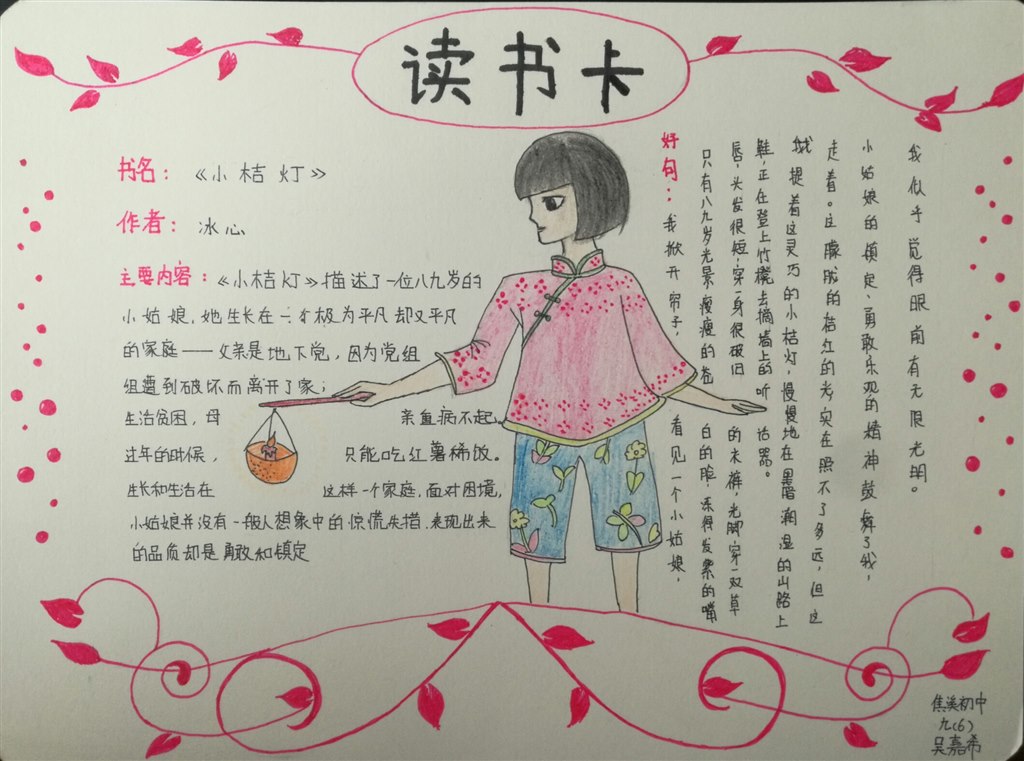 读书卡
书名：《小桔灯》
作者：冰心
主要内容：《小桔灯》描述了一位八九岁的
小姑娘，她生长在一个极为平凡却又平凡
的家庭——父亲是地下党，因为党组
组遭到破坏而离开了家；
生活贫困，母亲重病不起。
过年的时候，只能吃红薯稀饭。
生长和生活在这样一个家庭，面对困境，
小姑娘并没有一般人想象中的惊慌失措，表现出来
的品质却是勇敢和镇定
好句：我掀开帘子，看见一个小姑娘，
只有八九岁光景，瘦瘦的苍白的脸，冻得发紫的嘴
唇，头发很短，穿一身很破旧的衣裤，光脚穿一双草
鞋，正在登上竹凳去摘墙上的听话器。
我提着这灵巧的小桔灯，慢慢地在黑暗潮湿的山路上
走着。这朦胧的桔红的光，实在照不了多远，但这
小姑娘的镇定、勇敢乐观的精神鼓舞了我，
我似乎觉得眼前有无限光明。
焦溪初中
九(6)
吴嘉希